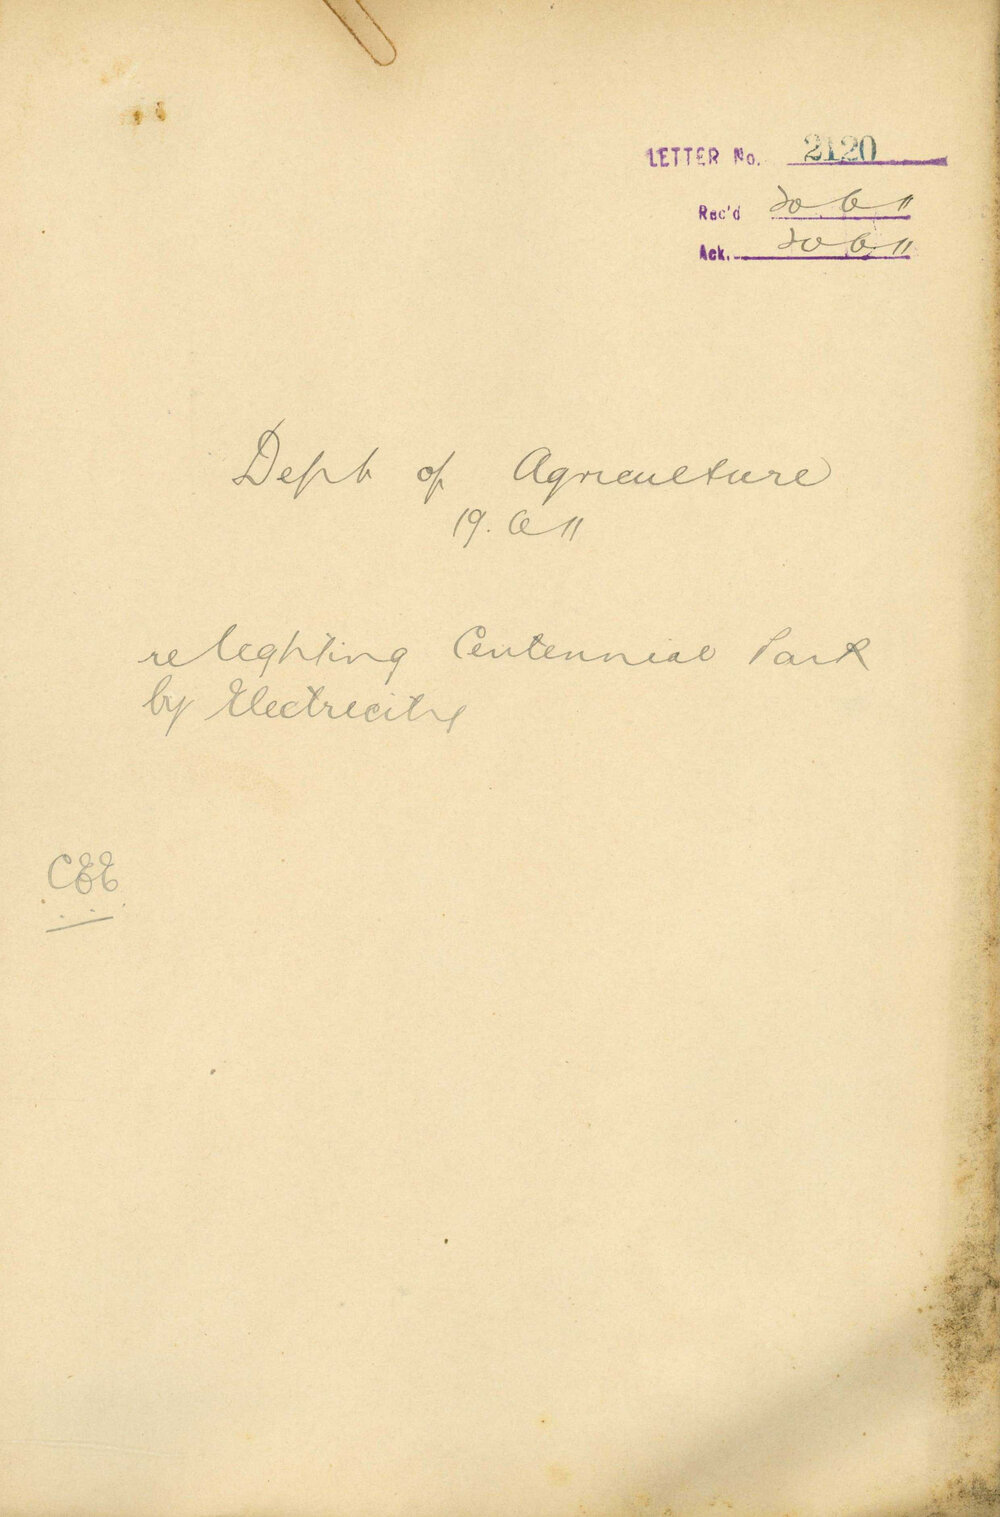 LETTER No. 2120
Rec'd 20 6 11
Ack. 20 6 11
Dept of Agriculture
19. 6 11
re lighting Centennial Park
by Electricity
CEE